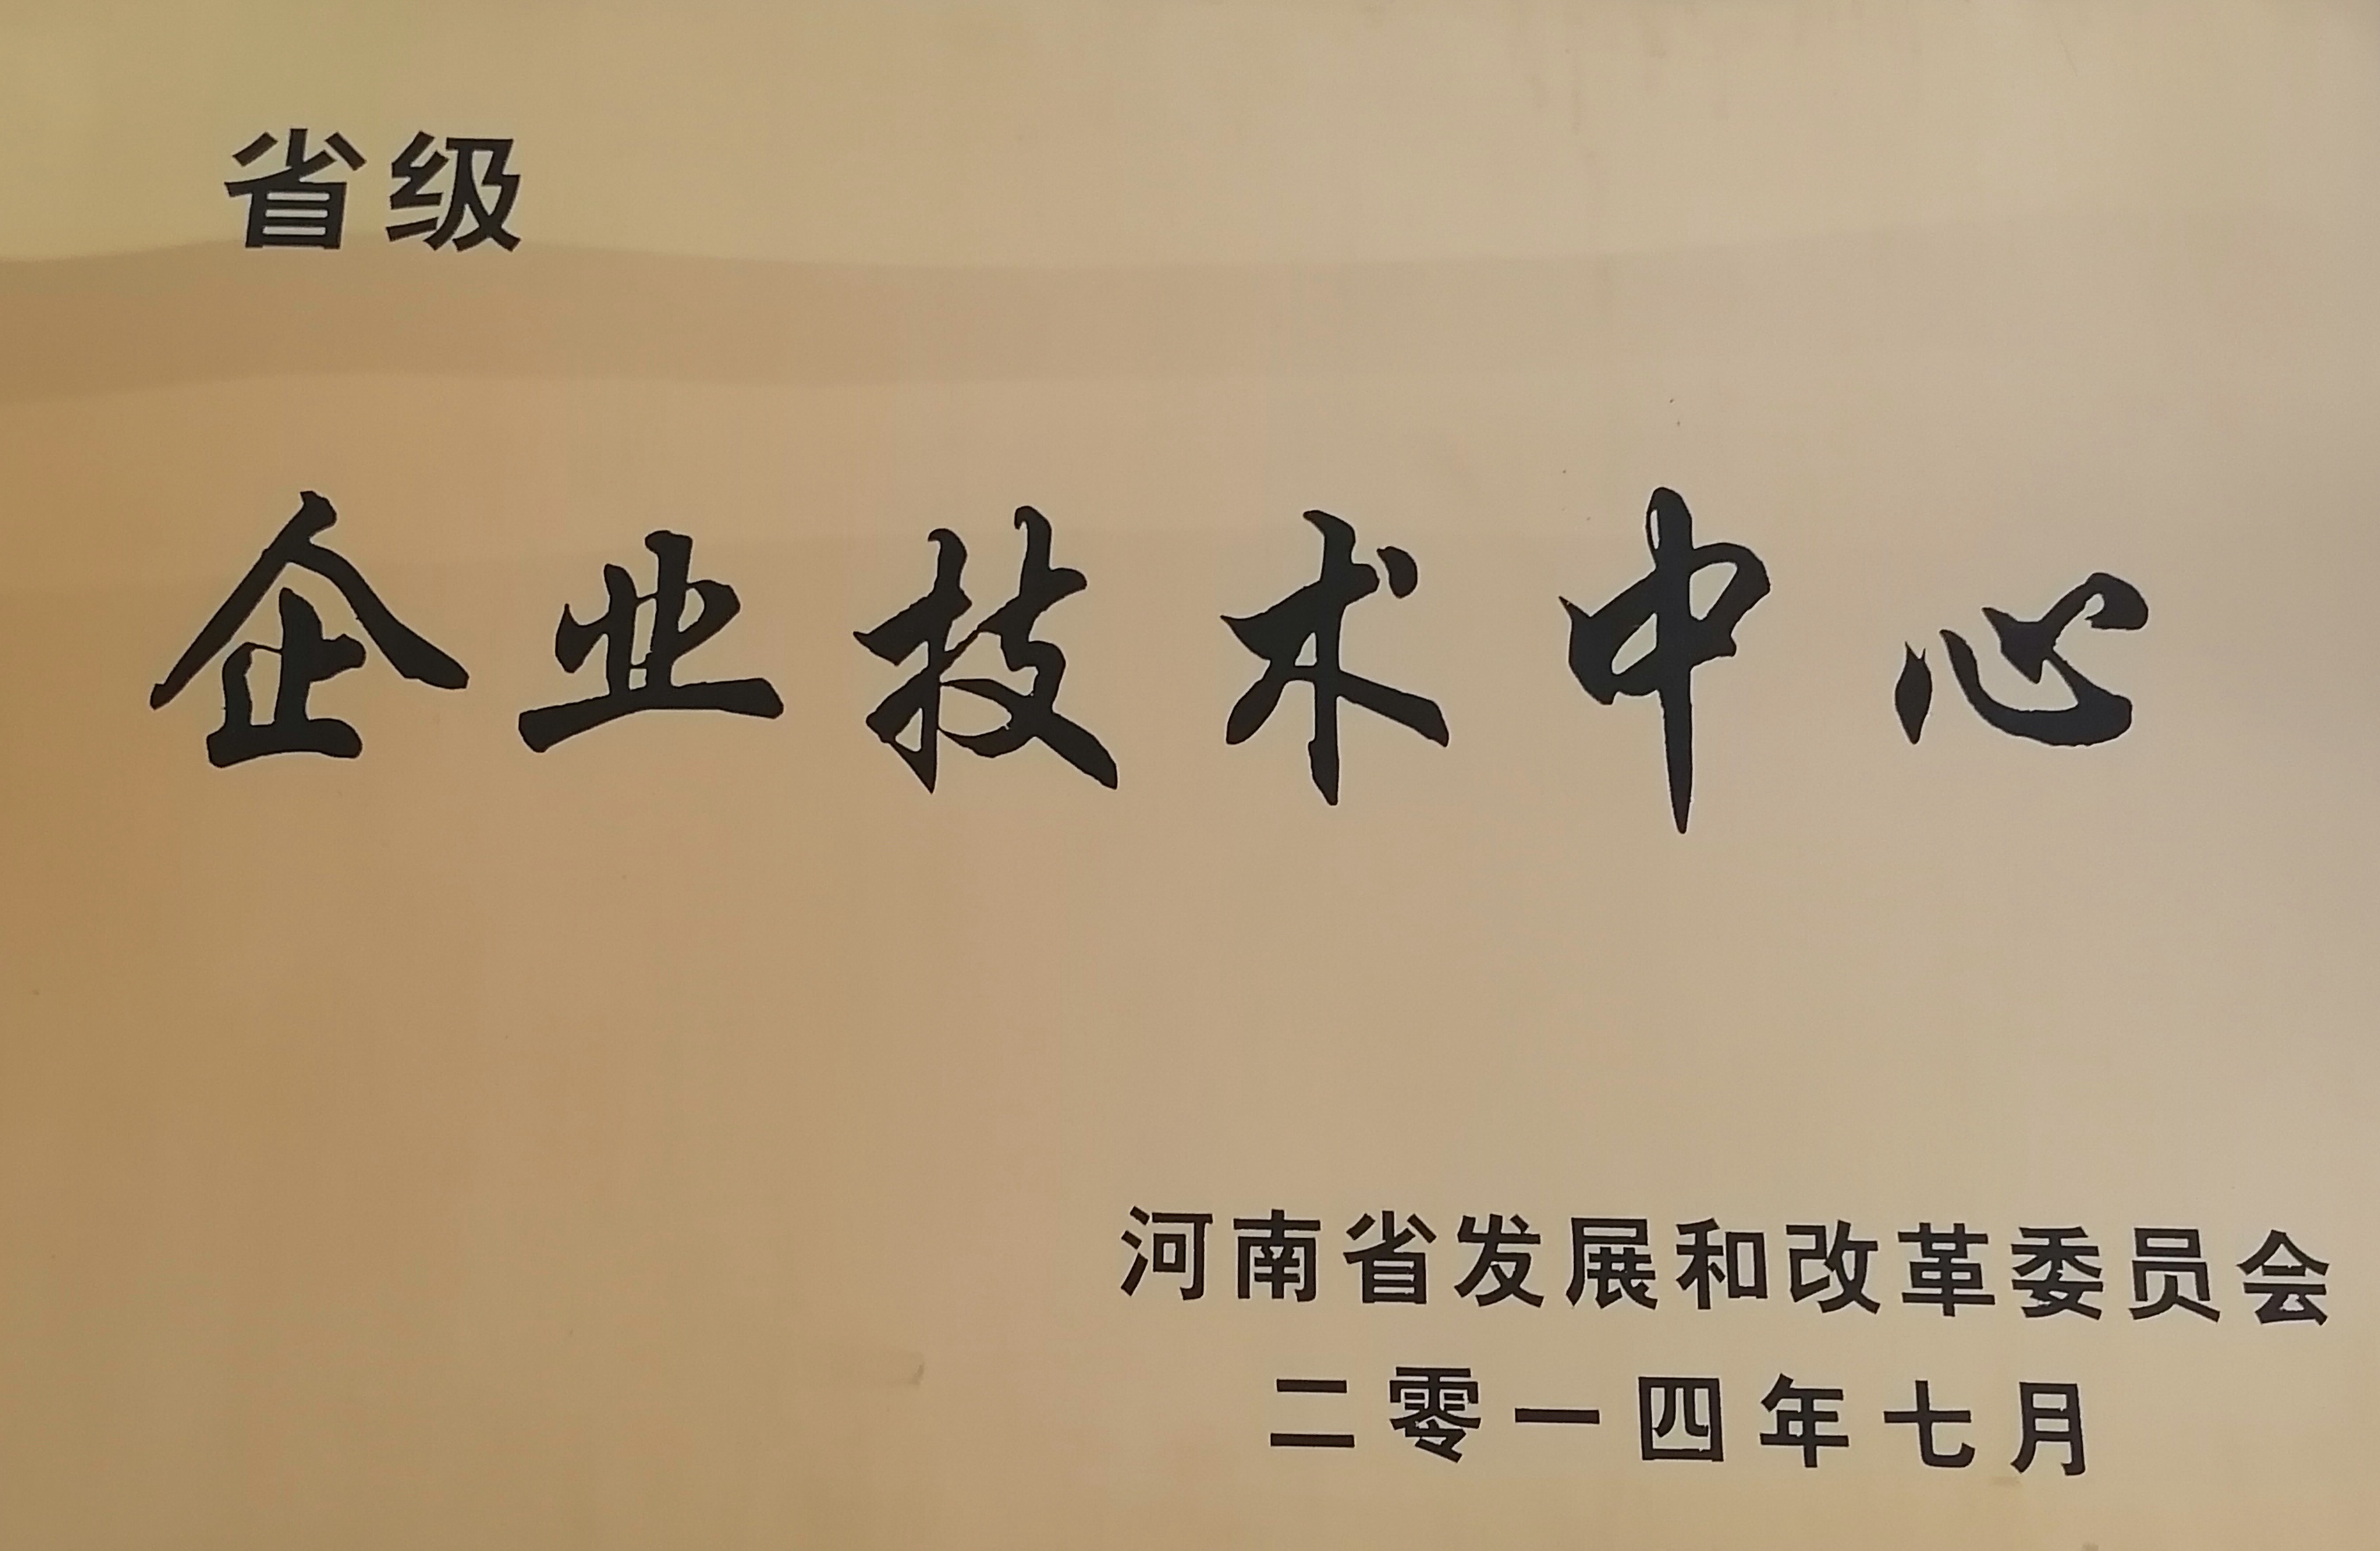 省级
企业技术中心
河南省发展和改革委员会
二零一四年七月